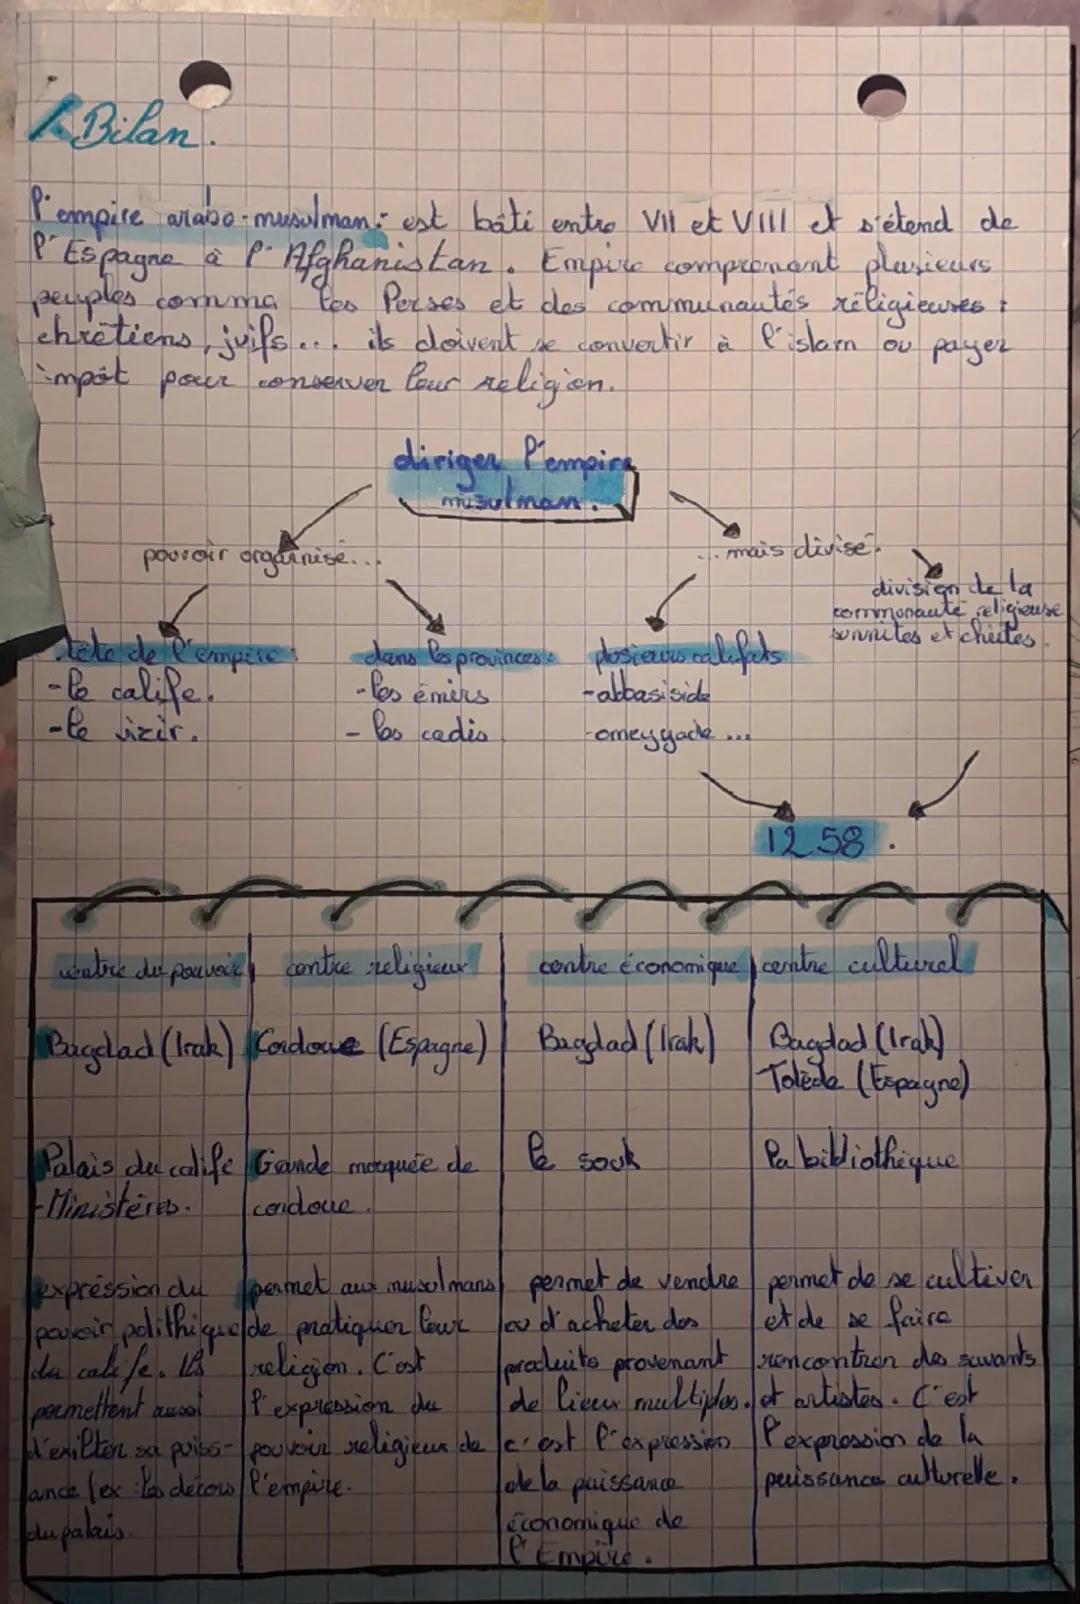 Bilan.
l'empire arabo-musulman : est bâti entre VII et VIII et s'étend de
l'Espagne à l'Afghanistan. Empire comprenant plusieurs
peuples comme les Perses et des communautés réligieuses :
chrétiens, juifs... ils doivent se convertir à l'islam ou payer
impôt pour conserver leur religion.
diriger l'empire
musulman.
pouvoir organisé...
... mais divisé.
division de la
communauté religieuse
sunnites et chiites.
tête de l'empire :
- le calife.
- le vizir.
dans les provinces :
- les émirs
- les cadis
plusieurs califats
- abbasiside
- omeyyade ...
1258.
centre du pouvoir
centre religieux
centre économique
centre culturel
Bagdad (Irak)
Cordoue (Espagne)
Bagdad (Irak)
Bagdad (Irak)
Tolède (Espagne)
Palais du calife
- Ministères.
Grande mosquée de
cordoue.
le souk
la bibliothèque
expréssion du
pouvoir polithique
du calife. Ils
permettent aussi
sa puiss-
ance (ex : les décors
du palais.
permet aux musulmans
de pratiquer leur
religion. C'est
l'expression du
pouvoir religieux de
l'empire.
permet de vendre
ou d'acheter des
produits provenant
de lieux multiples.
c'est l'expression
de la puissance
économique de
l'Empire.
permet de se cultiver
et de se faire
rencontrer des savants
et artistes. C'est
l'expression de la
puissance culturelle.